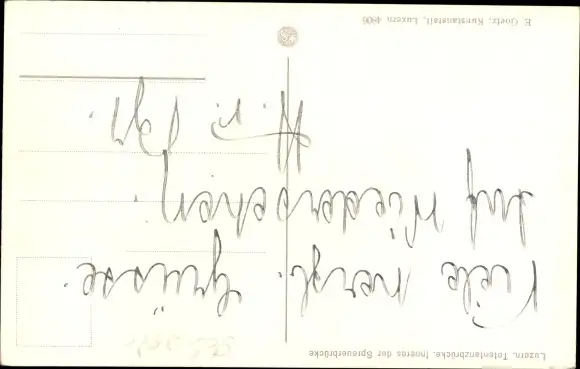 Luzern. Totentanzbrücke. Inneres der Spreuerbrücke
Viele herzl. Grüsse.
Auf Wiedersehen
E. Goetz, Kunstanstalt, Luzern 4806